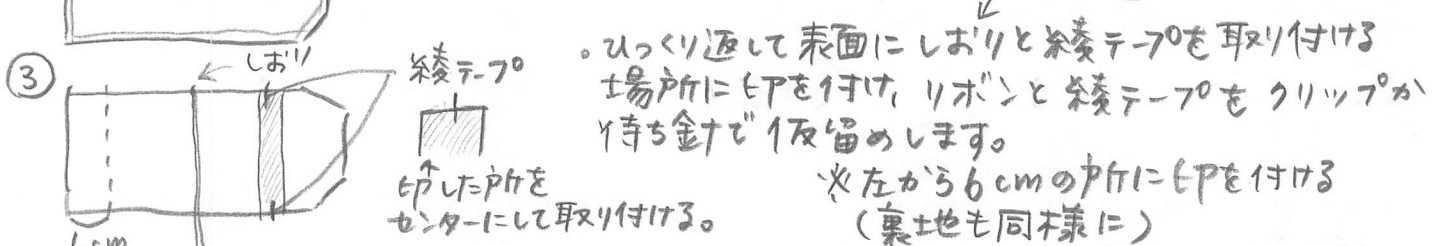 ③
しおり
綾テープ
印した所を
センターにして取り付ける。
1cm
。ひっくり返して表面にしおりと綾テープを取り付ける
場所に印を付け、リボンと綾テープをクリップか
待ち針で仮留めします。
※左から6cmの所に印を付ける
(裏地も同様に)